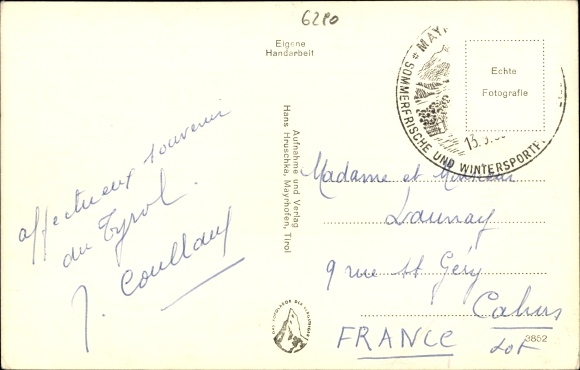 6290
Eigene
Handarbeit
MAY
SOMMERFRISCHE UND WINTERSPORTP
13.3.
Echte
Fotografie
affectueux souvenir
du Tyrol.
J.
Aufnahme und Verlag
Hans Hruschka, Mayrhofen, Tirol
Madame et Monsieur
Launay
9 rue St Géry
Cahors
FRANCE
Lot
3852